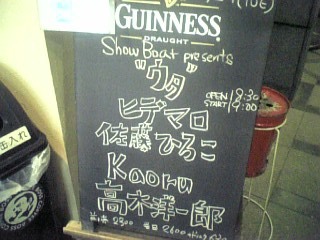 GUINNESS
DRAUGHT
Show Boat presents
"ウタ"
OPEN 18:30
START 19:00
ヒデマロ
佐藤ひろこ
Kaoru
高木洋一郎
2300 当日 2600
缶入れ